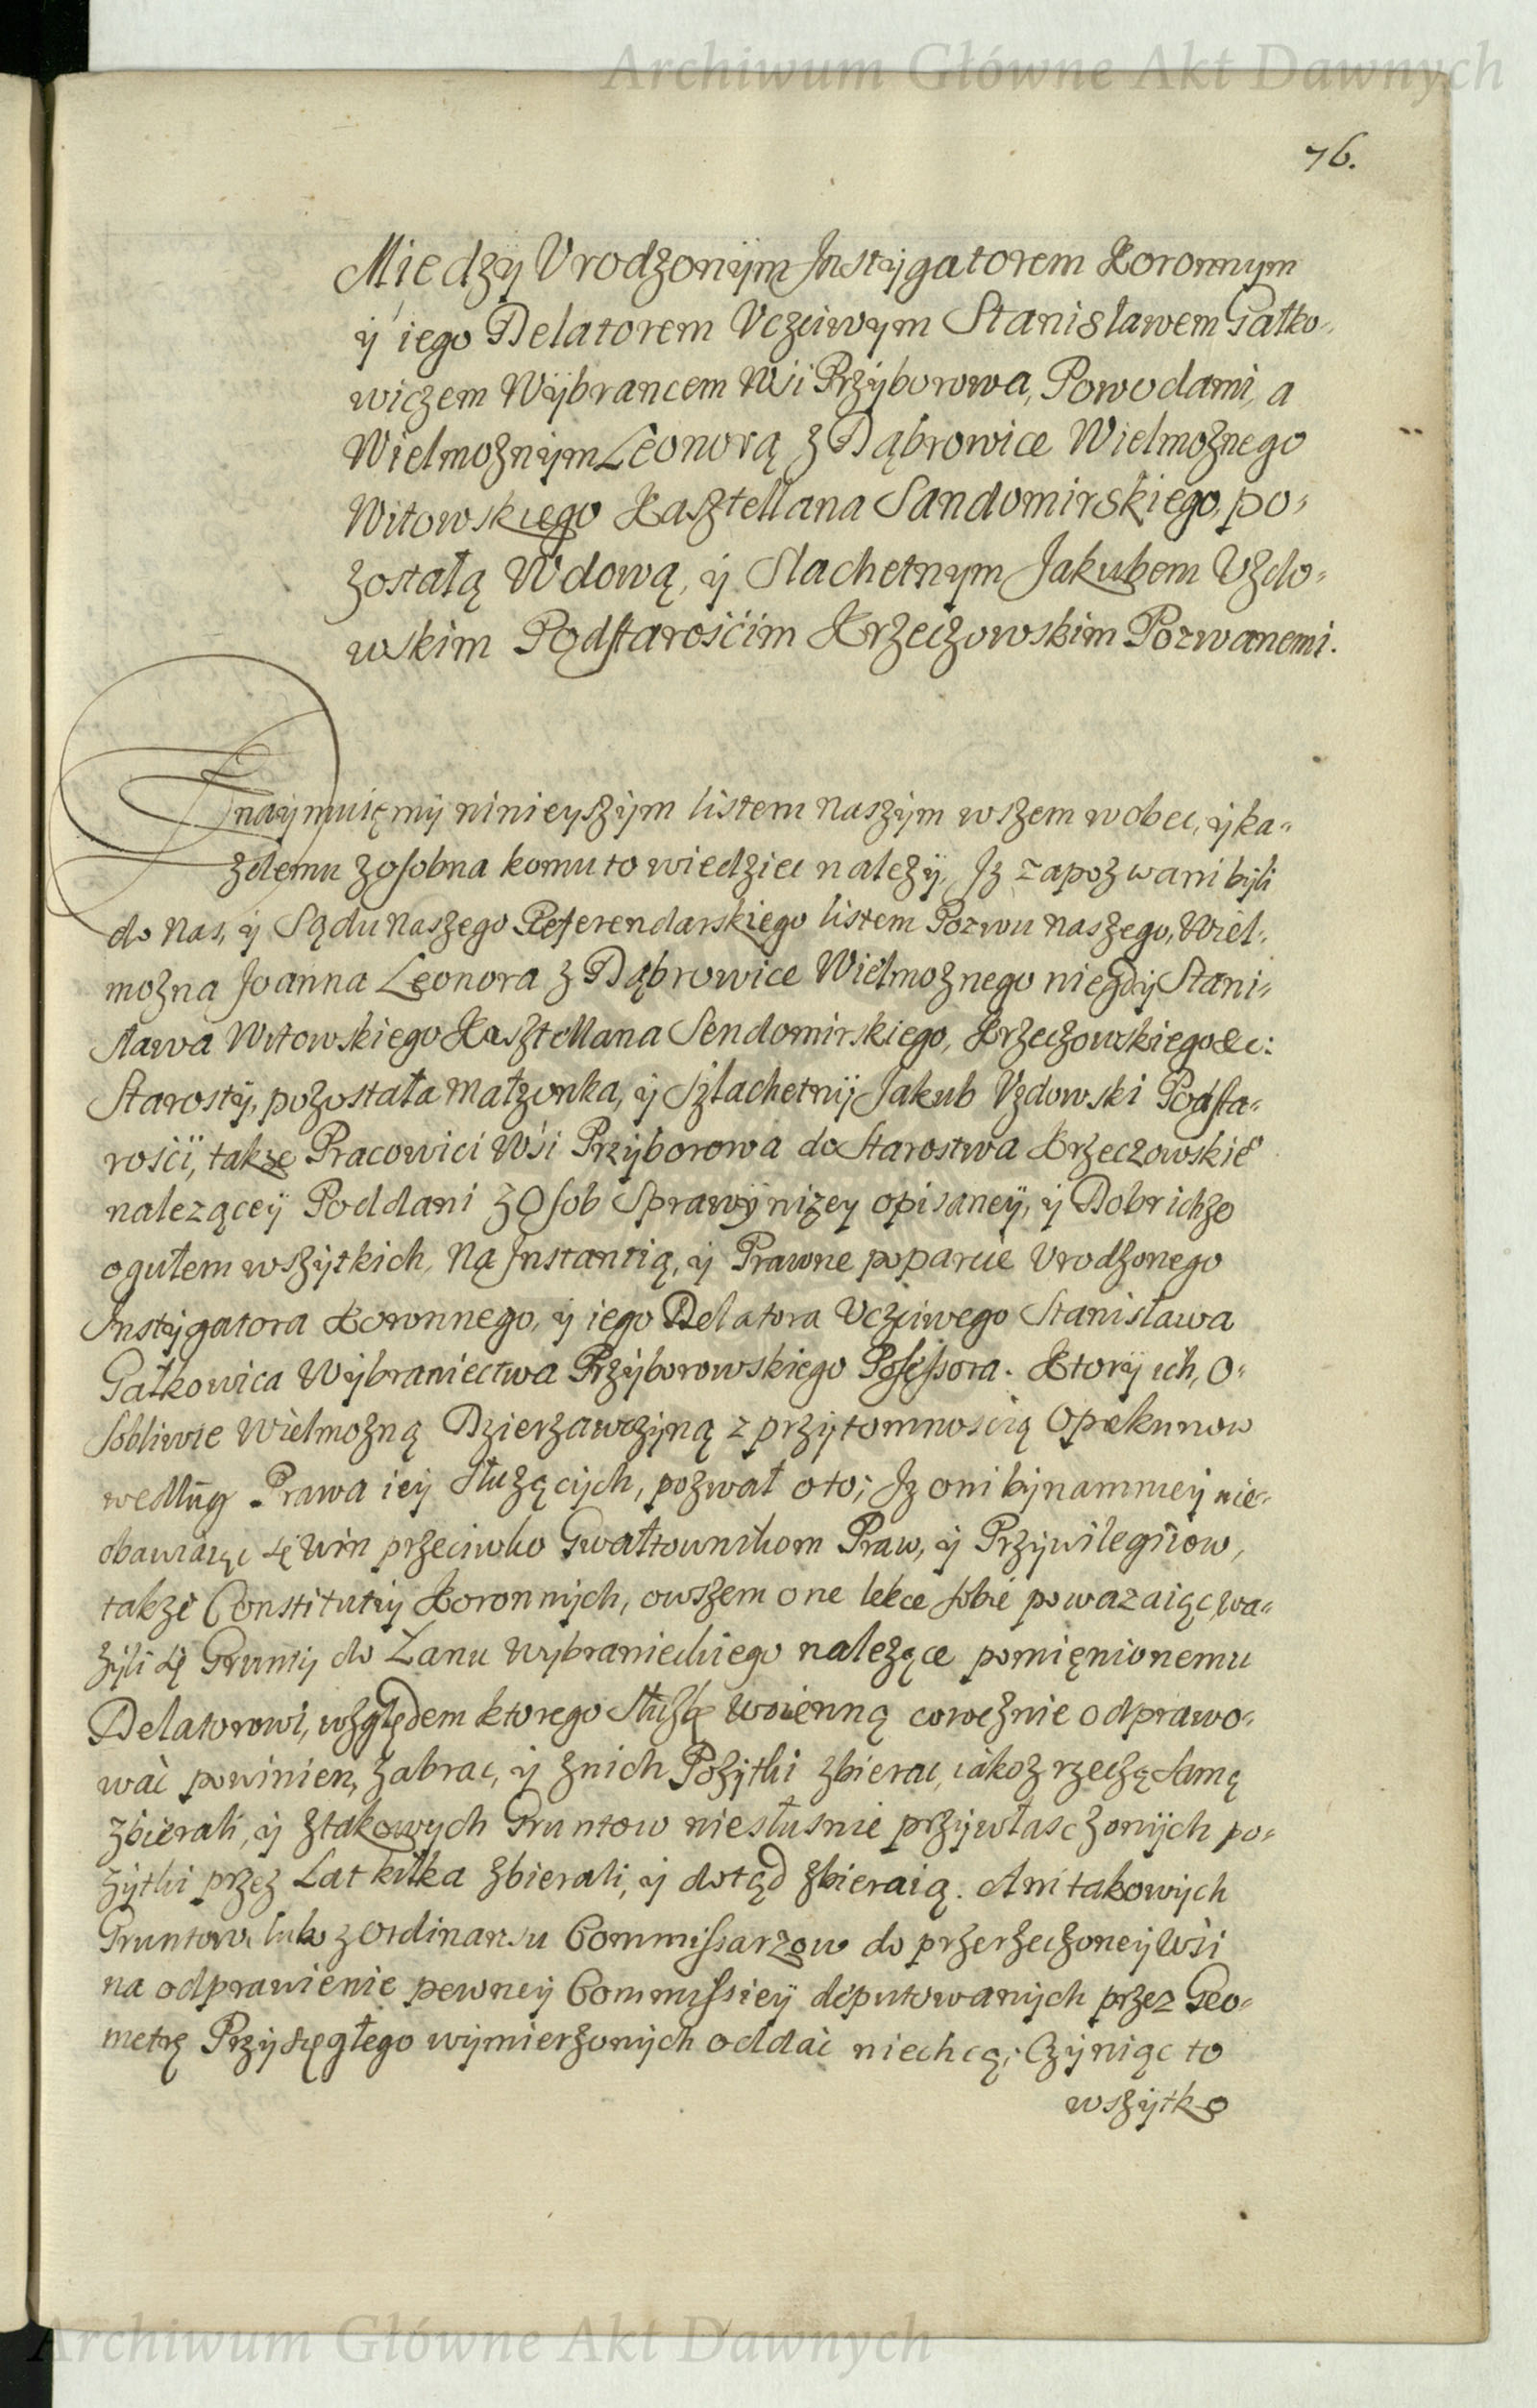 Archiwum Główne Akt Dawnych
76.
Między Vrodzonym Instygatorem Koronnym
y iego Delatorem Vczciwym Stanisławem Gałko-
wiczem Wybrancem Wsi Przyborowa, Powodami, a
Wielmożnym Leonorą z Dąbrowice Wielmożnego
Witowskiego Kasztellana Sandomirskiego, po-
zostałą Wdową, y Slachetnym Jakubem Vzdo-
wskim Podstarościm Krzeczowskim Pozwanemi.
Znaymuięmy ninieyszym listem naszym wszem wobec, y ka-
zdemu zosobna komu to wiedziec nalezy, Iz zapozwani byli
do nas, y Sądu naszego Referendarskiego listem Pozwu naszego, Wiel-
mozna Joanna Leonora z Dąbrowice Wielmoznego niegdy Stani-
sława Witowskiego Kasztellana Sendomirskiego, Krzeczowskiego &c:
Starosty, pozostała Małzonka, y Szlachetny Jakub Vzdowski Podsta-
rości, takze Pracowici Wsi Przyborowa do Starostwa Krzeczowskieo
nalezącey Poddani z Osob Sprawy nizey opisaney, y Dobr ichze
ogułem wszytkich, Na Instantią, y Prawne poparcie Vrodzonego
Instygatora Koronnego, y iego Delatora Vczciwego Stanisława
Gałkowica Wybraniectwa Przyborowskiego Possessora. Ktory ich, o-
sobliwie Wielmozną Dzierzawczyną z przytomnoscią Opiekunow
według Prawa iey słuzących, pozwał oto; Iz oni bynamniey nie-
obawiaiąc się Win przeciwko Gwałtownikom Praw, y Przywilegiiow,
takze Constitutiy Koronnych, owszem one lekce sobie powazaiąc, wa-
zyli się Grunty do Łanu Wybranieckiego nalezące pomięnionemu
Delatorowi, względem ktorego słuzbę woienną corocznie odprawo-
wać powinien, zabrac, y z nich Pozytki zbierac, iakoz rzeczą samą
zbierali, y ztakowych Gruntow niesłusnie przywłasczonych po-
zytki przez Lat kilka zbierali, y dotąd zbieraią. Ani takowych
Gruntow, lubo z Ordinansu Commissarzow do przerzeczoney Wsi
na odprawienie pewney Commissiey deputowanych przez Geo-
metrę Przysięgłego wymierzonych oddać niechcą; Czyniąc to
wszytko
Archiwum Główne Akt Dawnych